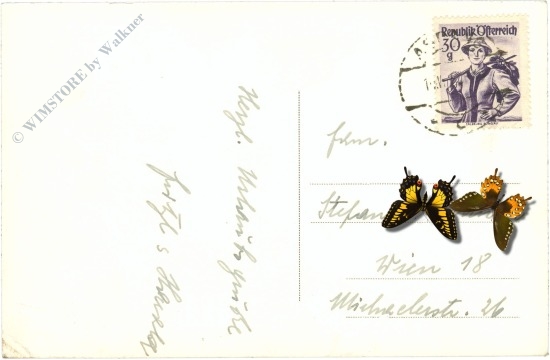 © WIMSTORE by Walkner
Republik Österreich
30
g
Herzl. Urlaubsgrüße
Fam.
Stefan
Wien 18
Michaelerstr. 26